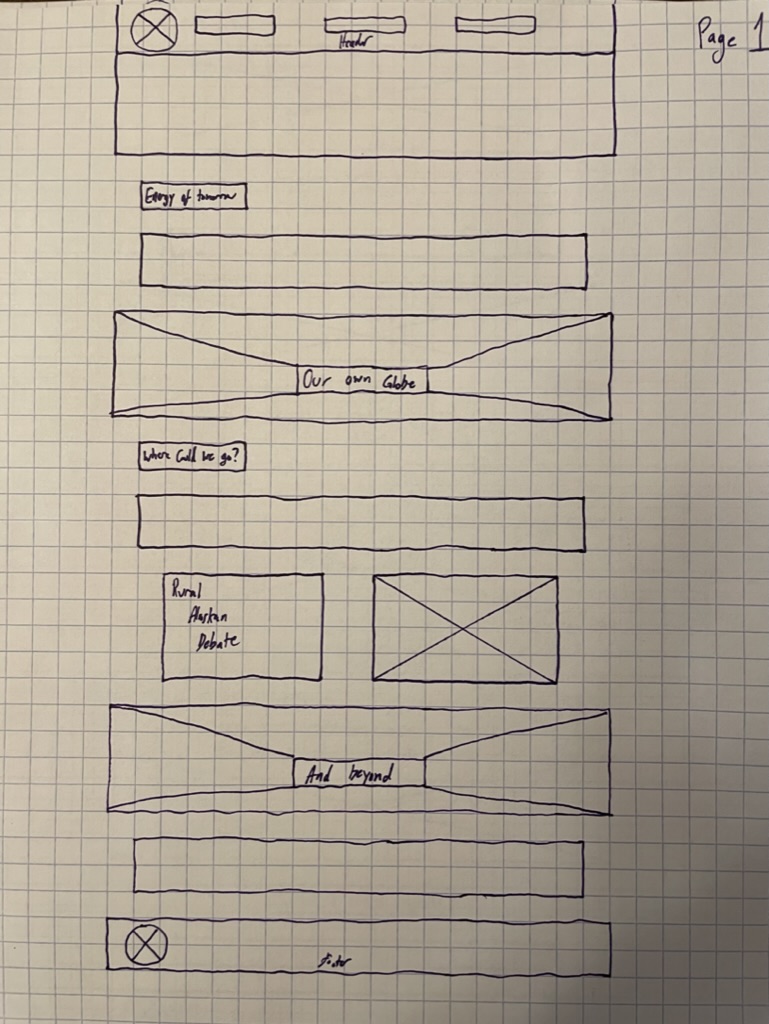 Page 1
Header
Energy of tomorrow
Our own Globe
Where Could we go?
Rural
Alaskan
Debate
And beyond
Footer